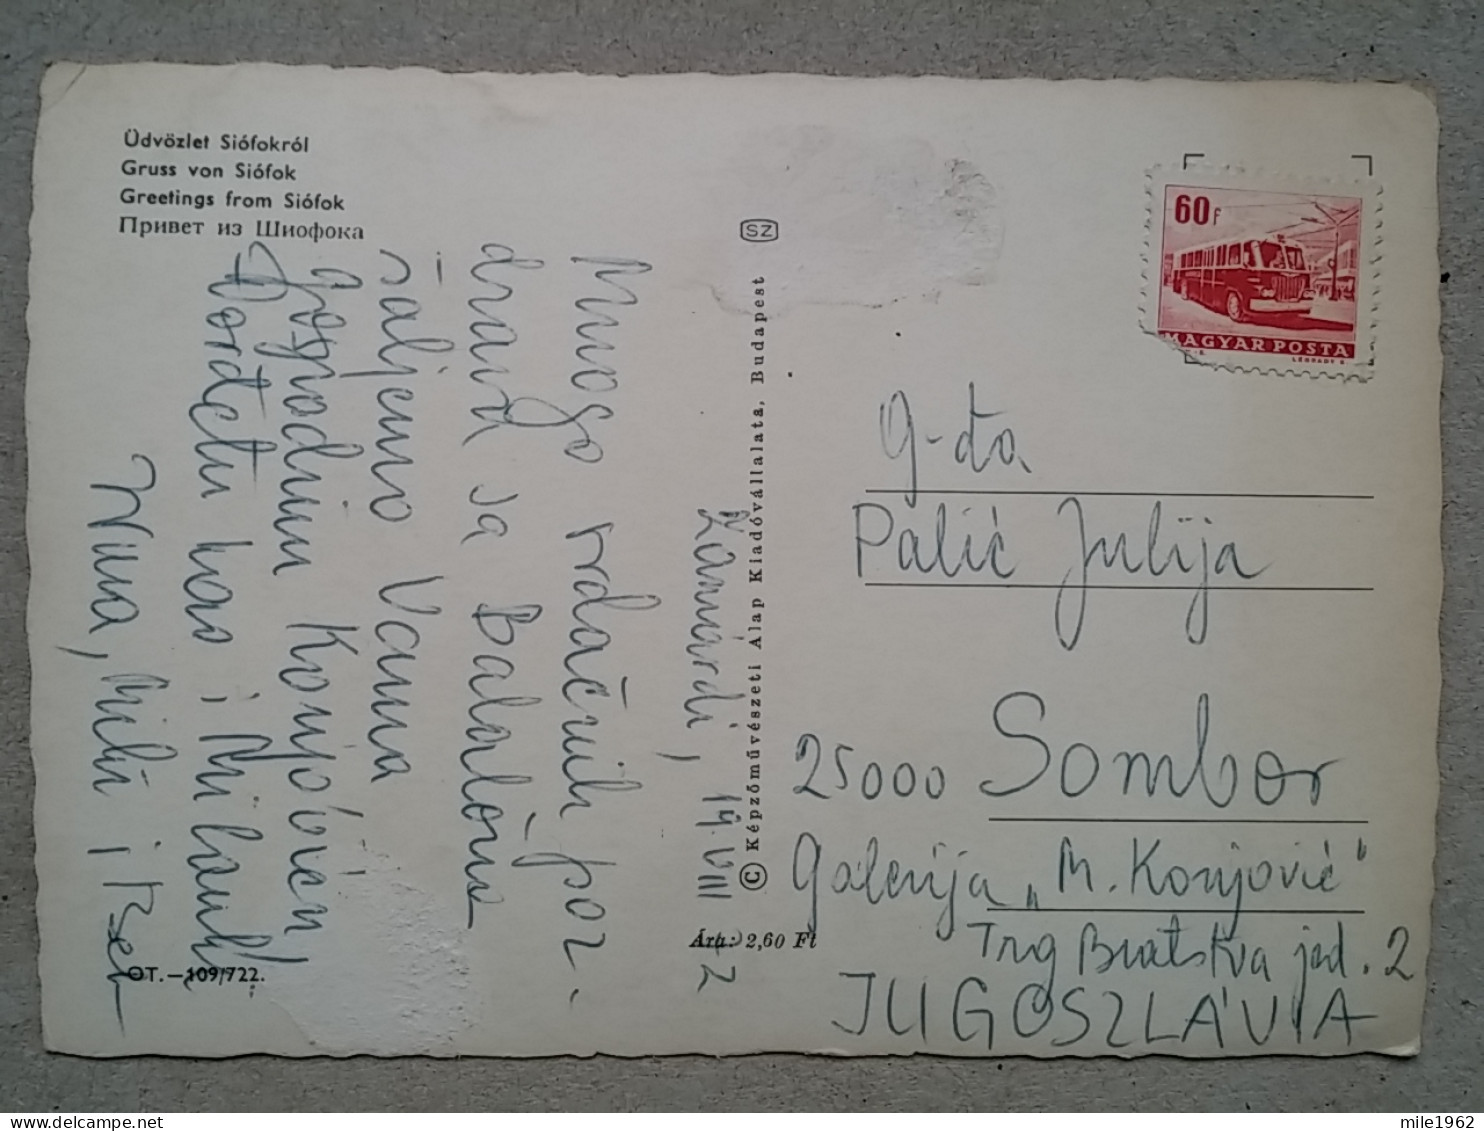 Üdvözlet Siófokról
Gruss von Siófok
Greetings from Siófok
Привет из Шиофока
Zamárdi, 19. VIII
Mnogo srdačnih poz-
drava sa Balatona
šaljemo Vama
gospodinu Konjoviću
Đorđetu kao i Milanu
i
OT.—109/722.
SZ
© Képzőművészeti Alap Kiadóvállalata, Budapest
Ára: 2,60 Ft
60f
MAGYAR POSTA
G-đa
Palić Julija
25000 Sombor
Galerija „M. Konjović"
Trg Bratstva jed. 2
JUGOSZLÁVIA
mile1962